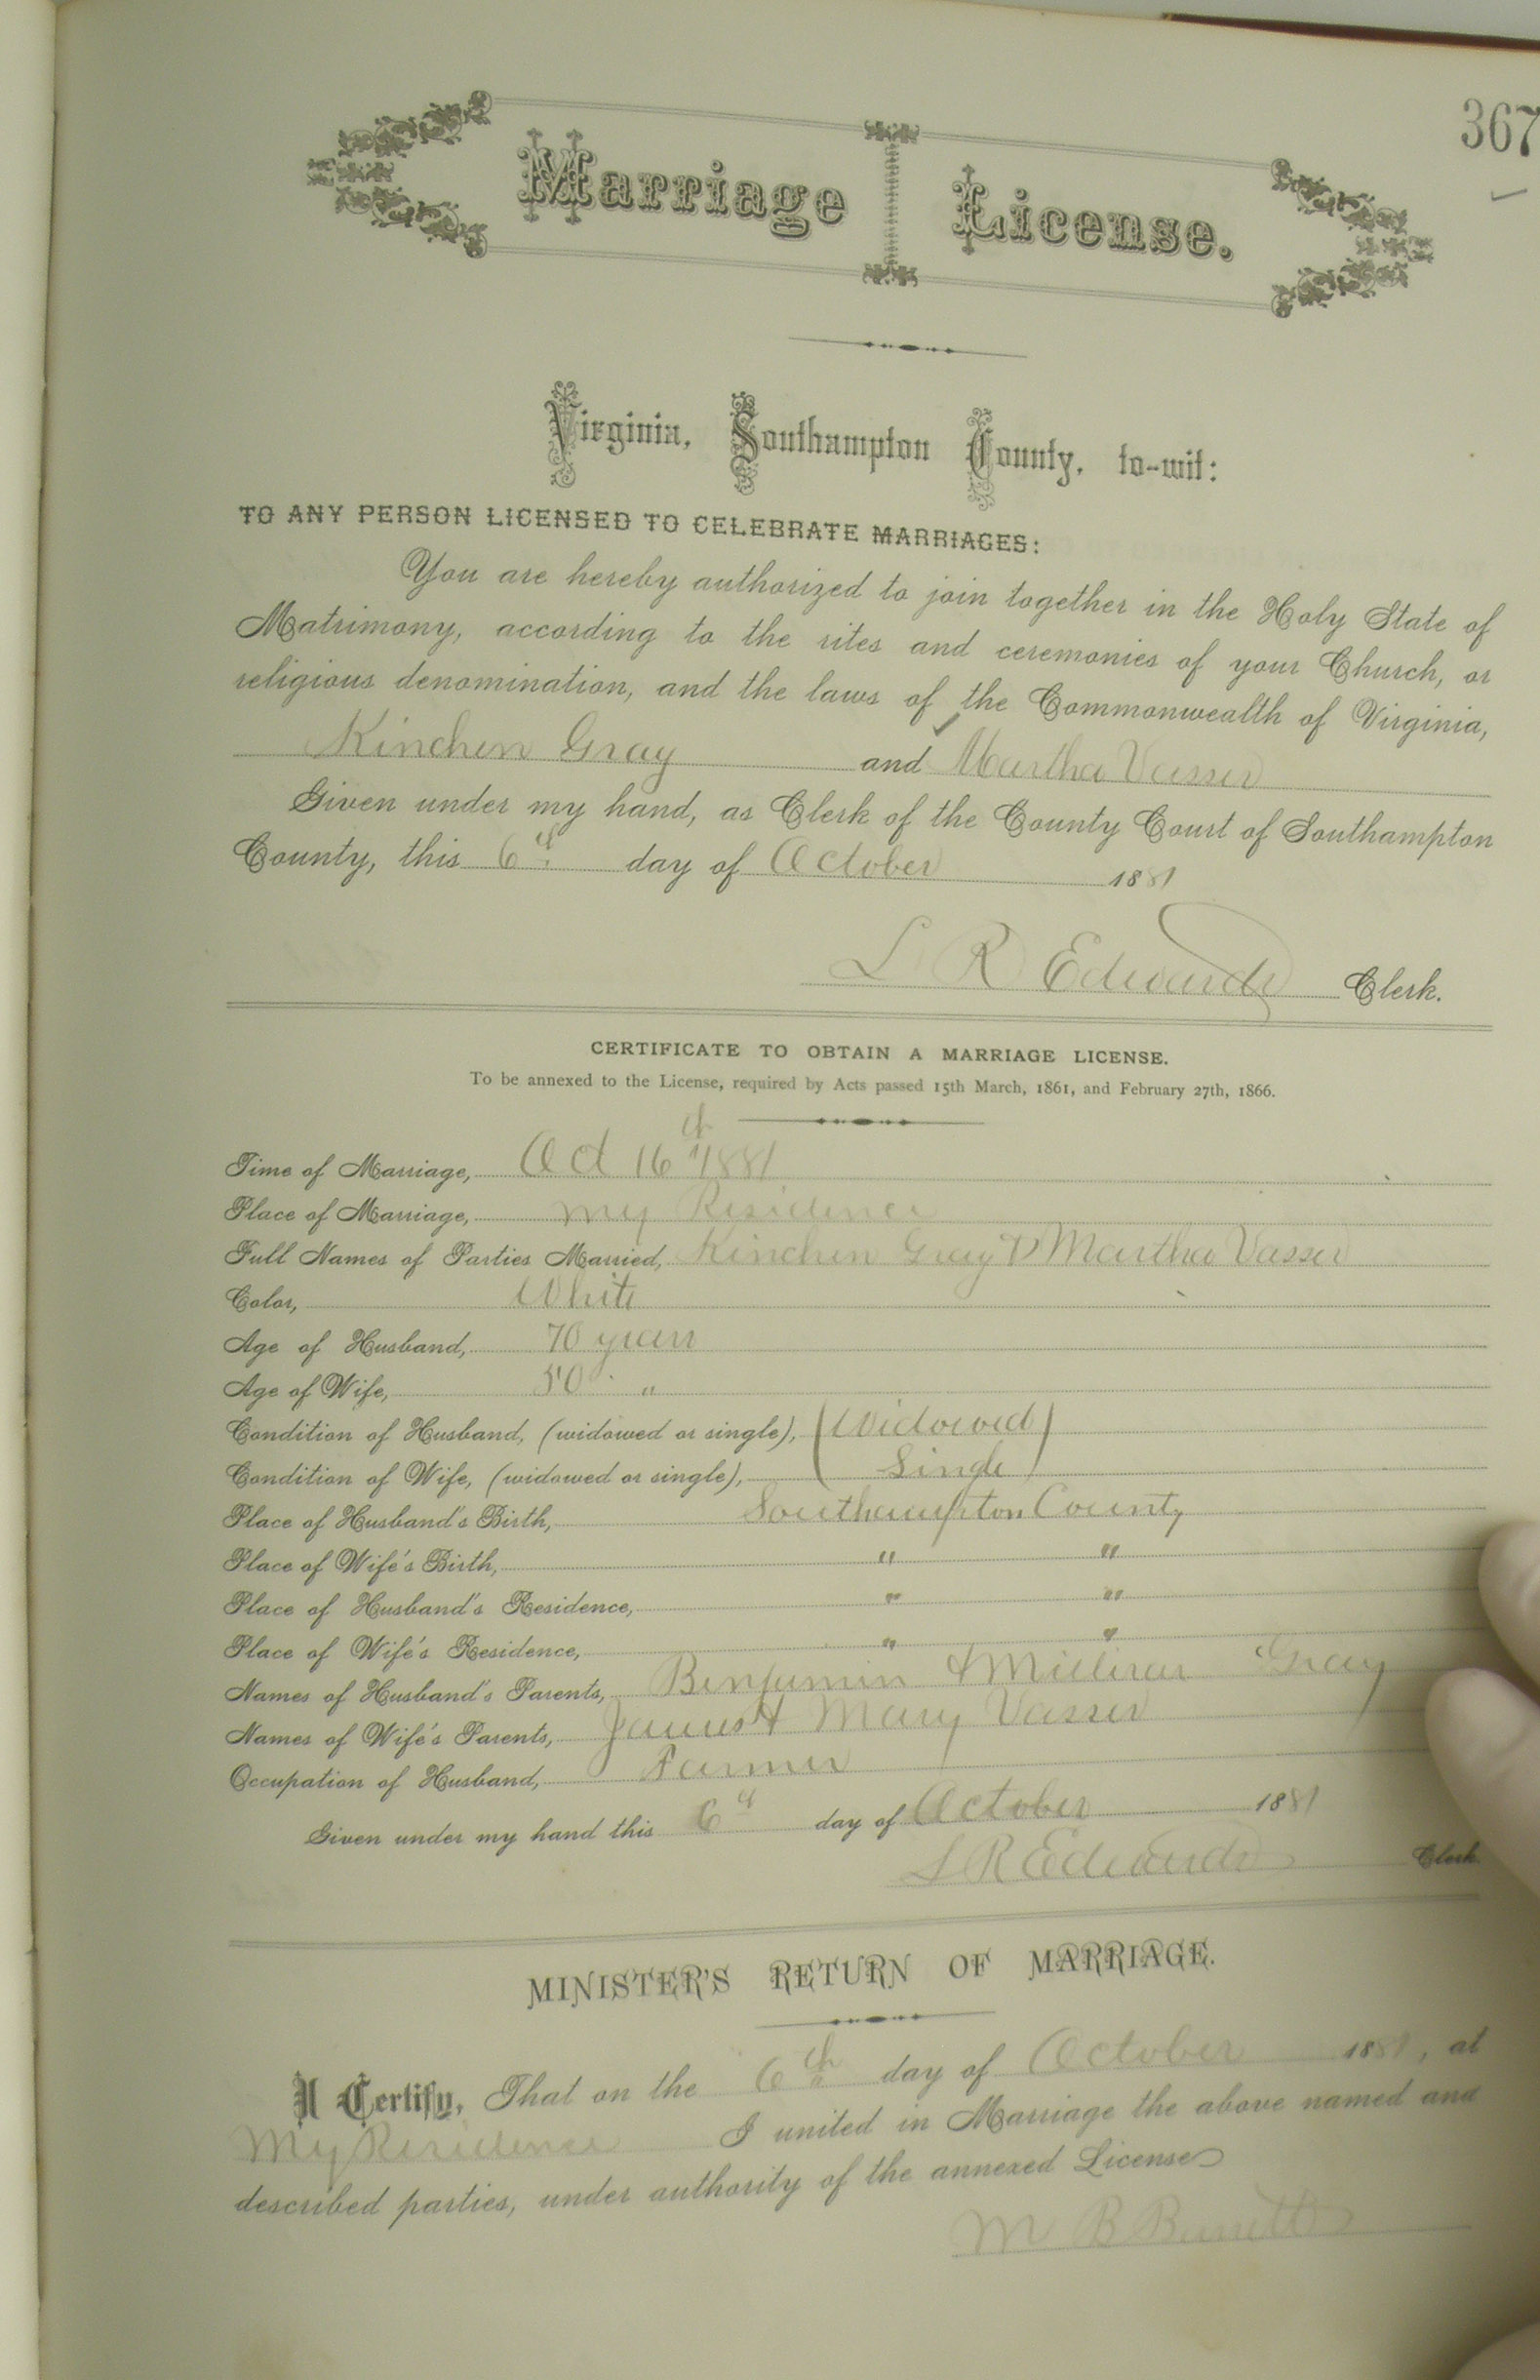 367
Marriage License.
Virginia, Southampton County, to-wit:
TO ANY PERSON LICENSED TO CELEBRATE MARRIAGES:
You are hereby authorized to join together in the Holy State of
Matrimony, according to the rites and ceremonies of your Church, or
religious denomination, and the laws of the Commonwealth of Virginia,
Kinchen Gray and Martha Vasser
Given under my hand, as Clerk of the County Court of Southampton
County, this 6th day of October 1881
L R Edwards Clerk.
CERTIFICATE TO OBTAIN A MARRIAGE LICENSE.
To be annexed to the License, required by Acts passed 15th March, 1861, and February 27th, 1866.
Time of Marriage, Oct 16th 1881
Place of Marriage, my Residence
Full Names of Parties Married, Kinchen Gray & Martha Vasser
Color, White
Age of Husband, 70 years
Age of Wife, 50 "
Condition of Husband, (widowed or single), (Widowed)
Condition of Wife, (widowed or single), Single
Place of Husband's Birth, Southampton County
Place of Wife's Birth, " "
Place of Husband's Residence, " "
Place of Wife's Residence, " "
Names of Husband's Parents, Benjamin & Gray
Names of Wife's Parents, James & Mary Vasser
Occupation of Husband, Farmer
Given under my hand this 6th day of October 1881
L R Edwards Clerk.
MINISTER'S RETURN OF MARRIAGE.
I Certify, That on the 6th day of October 1881, at
My Residence I united in Marriage the above named and
described parties, under authority of the annexed License
M B Barrett